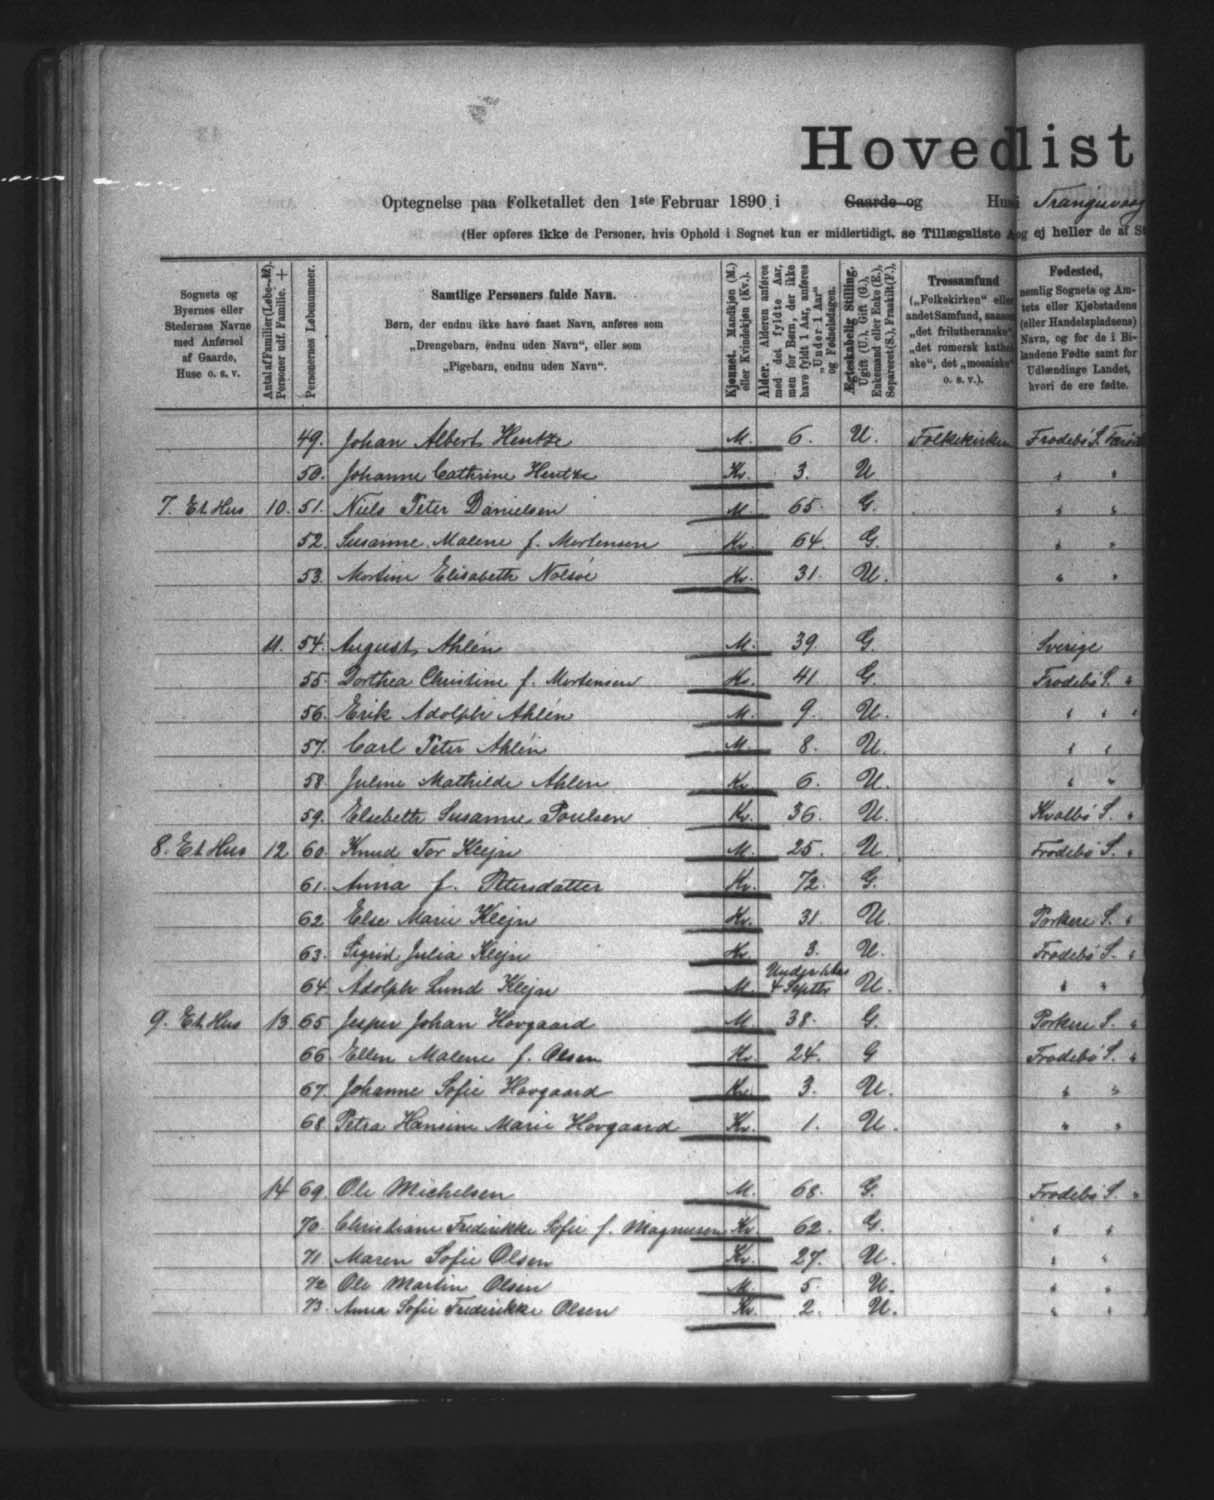 Hovedlist
Optegnelse paa Folketallet den 1ste Februar 1890 i Gaarde og Hus i Trangisvaag
(Her opføres ikke de Personer, hvis Ophold i Sognet kun er midlertidigt, se Tillægsliste A, og ej heller de af St
Sognets og Byernes eller Stedernes Navne med Anførsel af Gaarde, Huse o. s. v.
Antal af Familier (Løbe-№). Personer udf. Familie. +
Personernes Løbenummer.
Samtlige Personers fulde Navn.
Børn, der endnu ikke have faaet Navn, anføres som
„Drengebarn, endnu uden Navn“, eller som
„Pigebarn, endnu uden Navn“.
Kjønnet. Mandkjøn (M.) eller Kvindekjøn (Kv.).
Alder. Alderen anføres med det fyldte Aar, men for Børn, der ikke have fyldt 1 Aar, anføres „Under 1 Aar“ og Fødselsdagen.
Ægteskabelig Stilling. Ugift (U.), Gift (G.), Enkemand eller Enke (E.), Separeret (S.), Fraskilt (F.).
Trossamfund („Folkekirken“ eller andet Samfund, saasom „det frilutheranske“, „det romersk katholske“, det „mosaiske“ o. s. v.).
Fødested, nemlig Sognets og Amtets eller Kjøbstadens (eller Handelspladsens) Navn, og for de i Bilandene Fødte samt for Udlændinge Landet, hvori de ere fødte.
49. Johan Albert Hentze M. 6. U. Folkekirken Frodebø S. Færø
50. Johanne Cathrine Hentze Kv. 3. U " "
7. Et Hus 10. 51. Niels Peter Danielsen M. 65. G. " "
52. Susanne Malene f. Mortensen Kv. 64. G. " "
53. Mortine Elisabeth Nolsøe Kv. 31. U. " "
11. 54. August Ahlén M. 39. G. Sverige
55. Dorthea Christine f. Mortensen Kv. 41 G. Frodebø S. "
56. Erik Adolph Ahlén M. 9. U. " " "
57. Carl Peter Ahlén M. 8. U. " "
58. Juline Mathilde Ahlen Kv. 6. U. " "
59. Elsebeth Susanne Poulsen Kv. 36. U. Hvalbø S. "
8. Et Hus 12 60. Knud Tor Klejn M. 25. U. Frodebø S. "
61. Anna f. Petersdatter Kv. 72. G.
62 Else Marie Klejn Kv. 31 U. Porkere S. "
63. Sigrid Julia Klejn Kv. 3. U. Frodebø S. "
64. Adolph Lund Klejn M. Under 1 Aar 4 Septbr U. " "
9. Et Hus 13. 65. Jesper Johan Hovgaard M. 38. G. Porkere S. "
66. Ellen Malene f. Olsen Kv. 24. G Frodebø S. "
67. Johanne Sofie Hovgaard Kv. 3. U. " "
68. Petra Hansine Marie Hovgaard Kv. 1. U. " "
14 69. Ole Michelsen M. 68. G. Frodebø S. "
70. Christiane Frederikke Sofie f. Magnusen Kv. 62. G. " "
71 Maren Sofie Olsen Kv. 27. U. " "
72 Ole Martin Olsen M. 5. U. " "
73. Anna Sofie Frederikke Olsen Kv. 2. U. " "